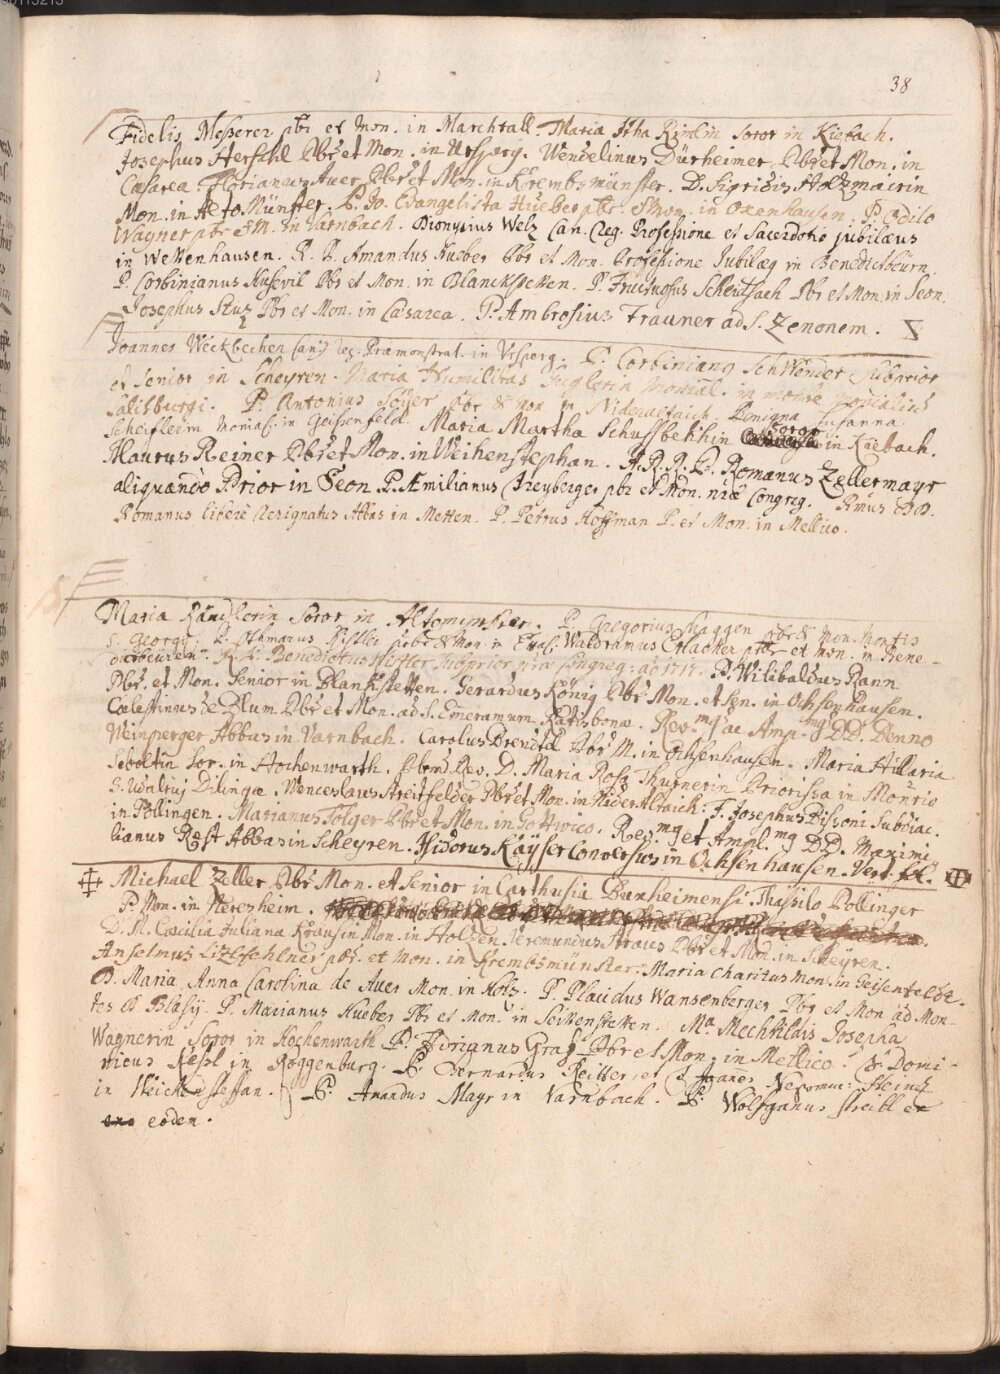 38
Fidelis Messerer pbr et Mon. in Marchtall. Maria Itha Rimlin soror in Kiebach.
Josephus Herschl Pbr et Mon. in Ursperg. Wendelinus Dürheimer, Pbr et Mon. in
Cæsarea. Florianus Auer Pbr et Mon. in Krembsmünster. D. Sigridis Holzmairin
Mon. in Alto Münster. P. Jo. Evangelista Hueber pbr. et Mon. in Oxenhausen. P. Odilo
Wagner pbr et M. in Varnbach. Dionysius Welz Can. Reg. Professione et Sacerdotio jubilæus
in Wettenhausen. R. P. Amandus Hueber Pbr et Mon. Professione Jubilæg in Benedictbeürn.
P. Corbinianus Pbr et Mon. in Blanckstetten. P. Fructuosus Scheitsach Pbr et Mon. in Seon.
Josephus Stuz Pbr et Mon. in Cæsarea. P. Ambrosius Trauner ad S. Zenonem.
Joannes Weickbecher Can. reg. Præmonstrat. in Ursperg. P. Corbiniang Schwender Subprior
et Senior in Scheyren. Maria Humilitas Monial. in monre monialium
Salisburgi. P. Antonius pbr & Mon in Nideraltaich. Benigna Susanna
Monial. in Geisenfeld. Maria Martha Schussbekhin Soror in Kiebach.
Maurus Reiner Pbr et Mon. in Weihenstephan. A.R.R.P. Romanus Zellermayr
aliquando Prior in Seon. P. Æmilianus Freyberger pbr et Mon. nræ Congreg. Rmus DD.
Romanus liberè Resignatus Abbas in Metten. P. Petrus Hoffman P. et Mon. in Mellico.
Maria Kändlerin Soror in Altominster. P. Gregorius Maggen pbr & Mon. Montis
S. Georgij. P. Othmarus pbr & Mon. in Waldramus Erlacher pbr et mon. in Bene-
dictbeüren. R.P. Benedictus Subprior nræ Congreg. aò 1717. P. Wilibaldus Rann
Pbr. et Mon. Senior in Blankstetten. Gerardus König Pbr Mon. et sen. in Ochsenhausen.
Cœlestinus de Blum Pbr et Mon. ad S. Emeramum Ratisbonæ. Rev.mg ac Amp.mg DD. Benno
Weinperger Abbas in Varnbach. Carolus Brendtl Pbr M. in Ochsenhausen. Maria Hillaria
Seboltin Sor. in Hochenwarth. Plrmd Rev. D. Maria Rosa Thurnerin Priorissa in Monrio
S. Udalrij Dilingæ. Wenceslaus Streitfelder Pbr et Mon. in Nider Altaich. F. Josephus Dissoni Subdiac.
in Pollingen. Marianus Folger Pbr et Mon. in Gottwico. Rev.mg et Ampl.mg DD. Maximi-
lianus Rest Abbas in Scheyren. Isidorus Kayser Conversus in Ochsenhausen. Vert. fol.
Michael Zeller Pbr Mon. et Senior in Carthusia Buxheimensi. Thassilo Pollinger
P. Mon. in Neresheim.
D. M. Cæcilia Juliana Krausin Mon. in Holzen. Veremundus Straus Pbr et Mon. in Scheyren.
Anselmus Lizlfehlner pbr. et Mon. in Krembsmünster. Maria Charitas Mon. in Geisenfeldt.
D. Maria Anna Carolina de Auer Mon. in Holz. P. Placidus Wansenberger Pbr et Mon ad Mon-
tes S. Blasij. P. Marianus Hueber Pbr et Mon. in Seittenstetten. Ma. Mechtildis Josepha
Wagnerin Soror in Hochenwarth. P. Adrianus Gray Pbr et Mon. in Mellico. Fr. Domi-
nicus Kessl in Roggenburg. P. Bernardus Reitter, et P. Joanes Nepomuc: Steinz
in Weichenstefan. P. Amandus Mayr in Varnbach. P. Wolfganus Streibl ex
eodem.